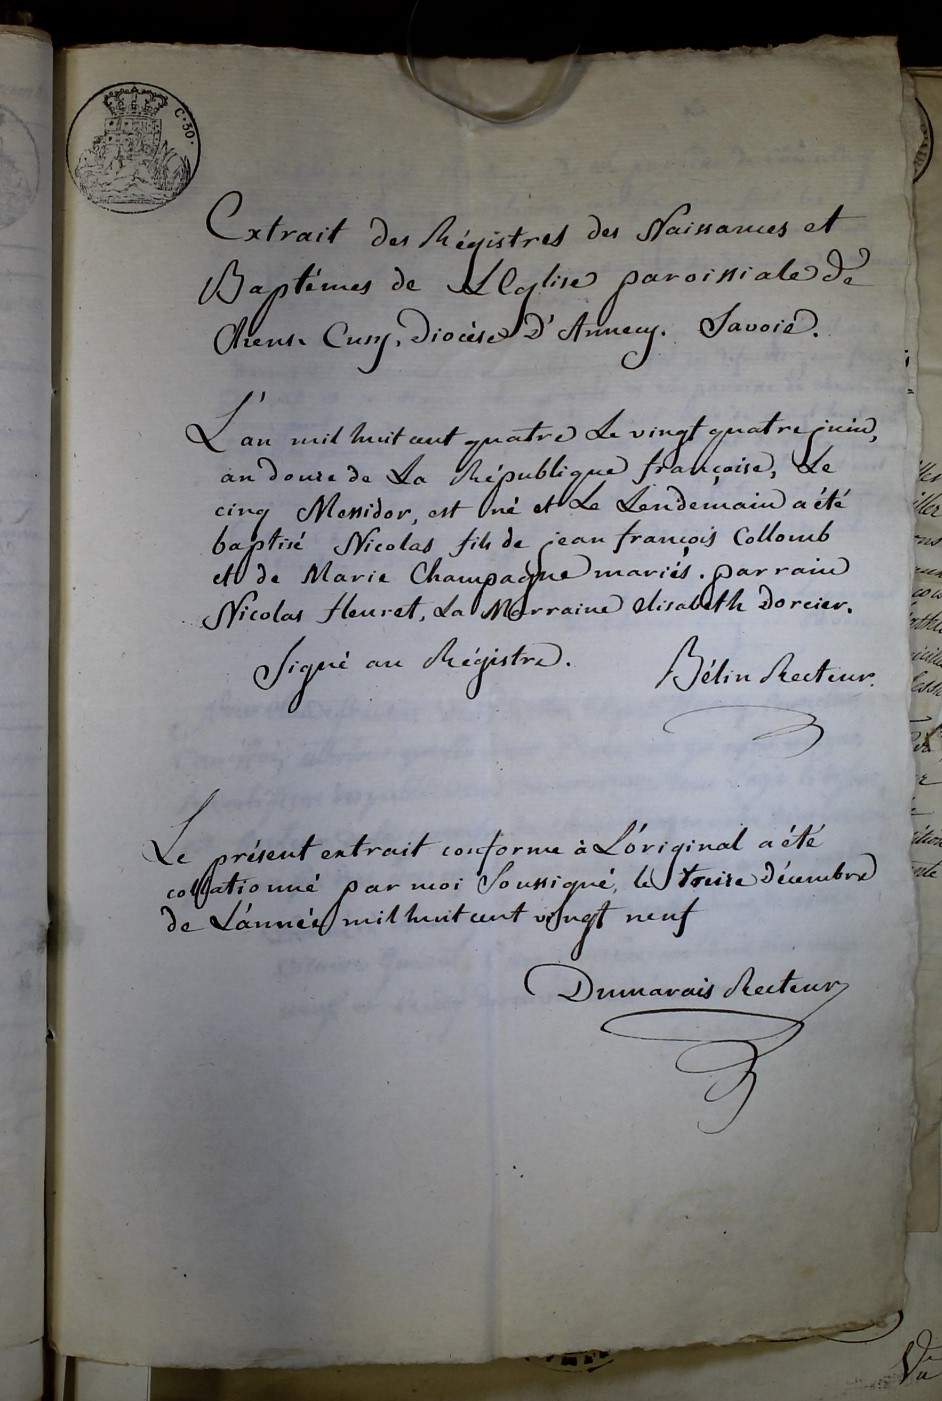 C. 30.
Extrait des Régistres des Naissances et
Baptêmes de L'Eglise paroissiale de
Chens Cusy, Diocèse D'Annecy. Savoie.
L'an mil huit cent quatre Le vingt quatre juin,
an douze de La République françoise, Le
cinq Messidor, est né et Le Lendemain a été
baptisé Nicolas fils de jean françois Collomb
et de Marie Champagne mariés. parrain
Nicolas fleuret, La Marraine elisabeth Dorcier.
Signé au Régistre.
Bélin Recteur.
Le présent extrait conforme à L'original a été
collationné par moi Soussigné, le treize Décembre
de L'année mil huit cent vingt neuf
Dumarais Recteur